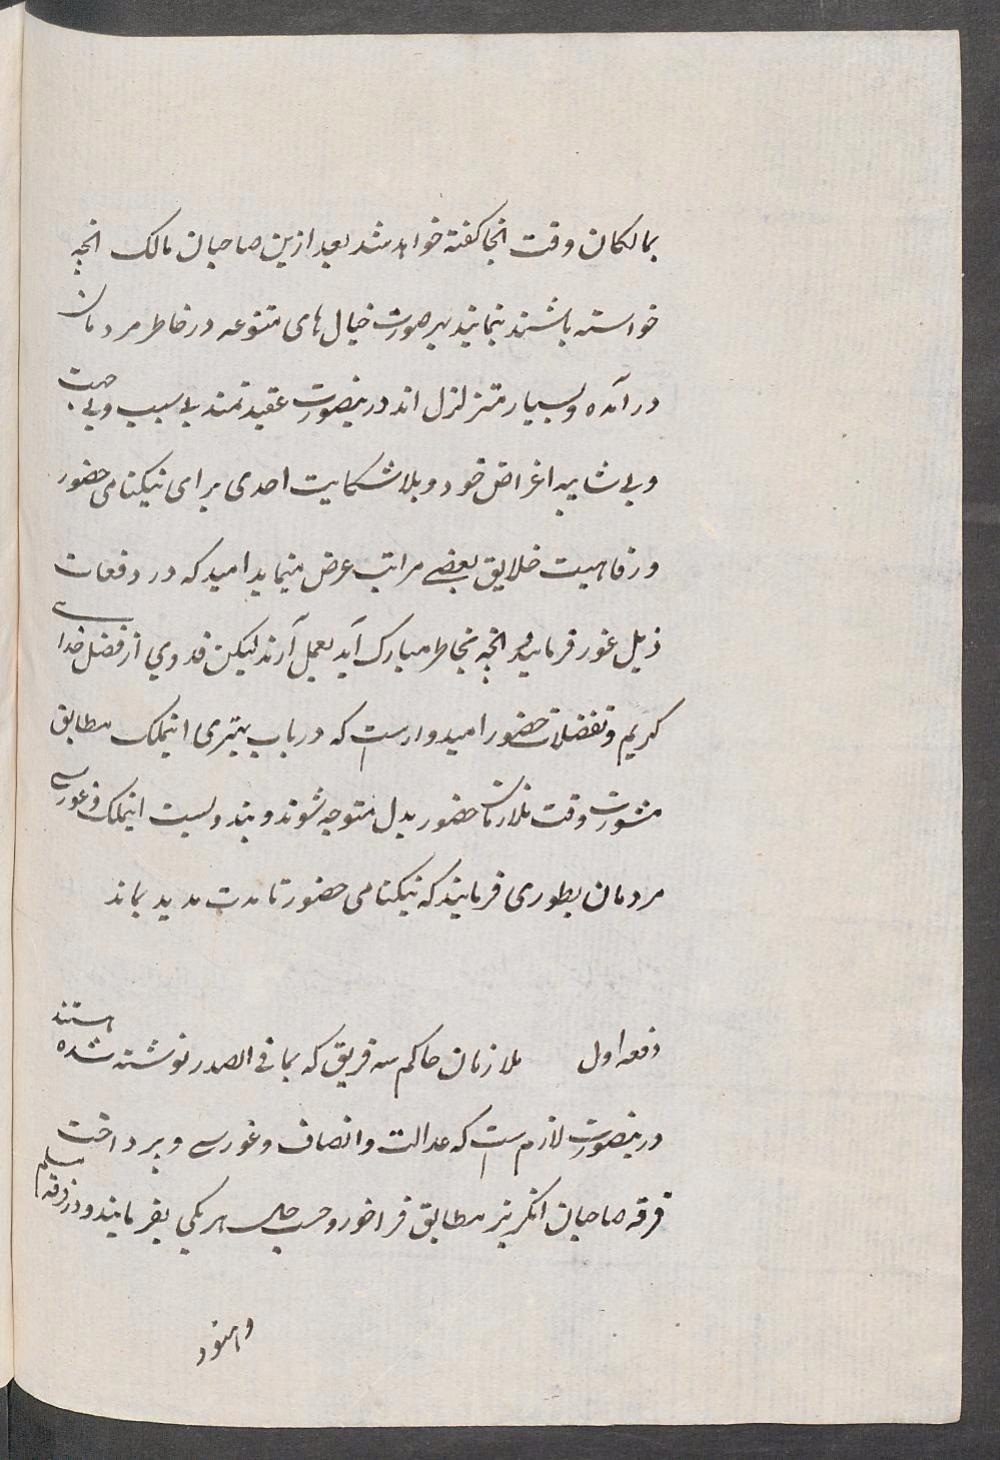 بمالکان وقت انجا کفته خواهد شد بعد ازین صاحبان مالک انچه
خواسته باشند بنمایند بهر صورت خیال های متنوعه در خاطر مردمان
درآمده و بسیار متزلزل اند درینصورت عقیدتمند بی سبب و بی جهت
و بی شایبه اغراض خود و بلا شکایت احدی برای نیکنامی حضور
و رفاهیت خلایق بعضے مراتب عرض مینماید امید که در دفعات
ذیل غور فرمایند و انچه بخاطر مبارک آید بعمل آرند لیکن فدوی از فضل خداے
کریم و تفضلات حضور امیدوارست که در باب بهتری اینملک مطابق
مشورت وقت ملازمان حضور بدل متوجه شوند و بندوبست اینملک و غورسے
مردمان بطوری فرمایند که نیکنامی حضور تا مدت مدید بماند
دفعه اول ملازمان حاکم سه فریق که بما فی الصدر نوشته شده هستند
درینصورت لازم ست که عدالت و انصاف و غورسے و پرداخت
فرقه صاحبان انگریز مطابق فراخور و حسب حال هر یکی بفرمایند و در فرقه مسلم
و هنود